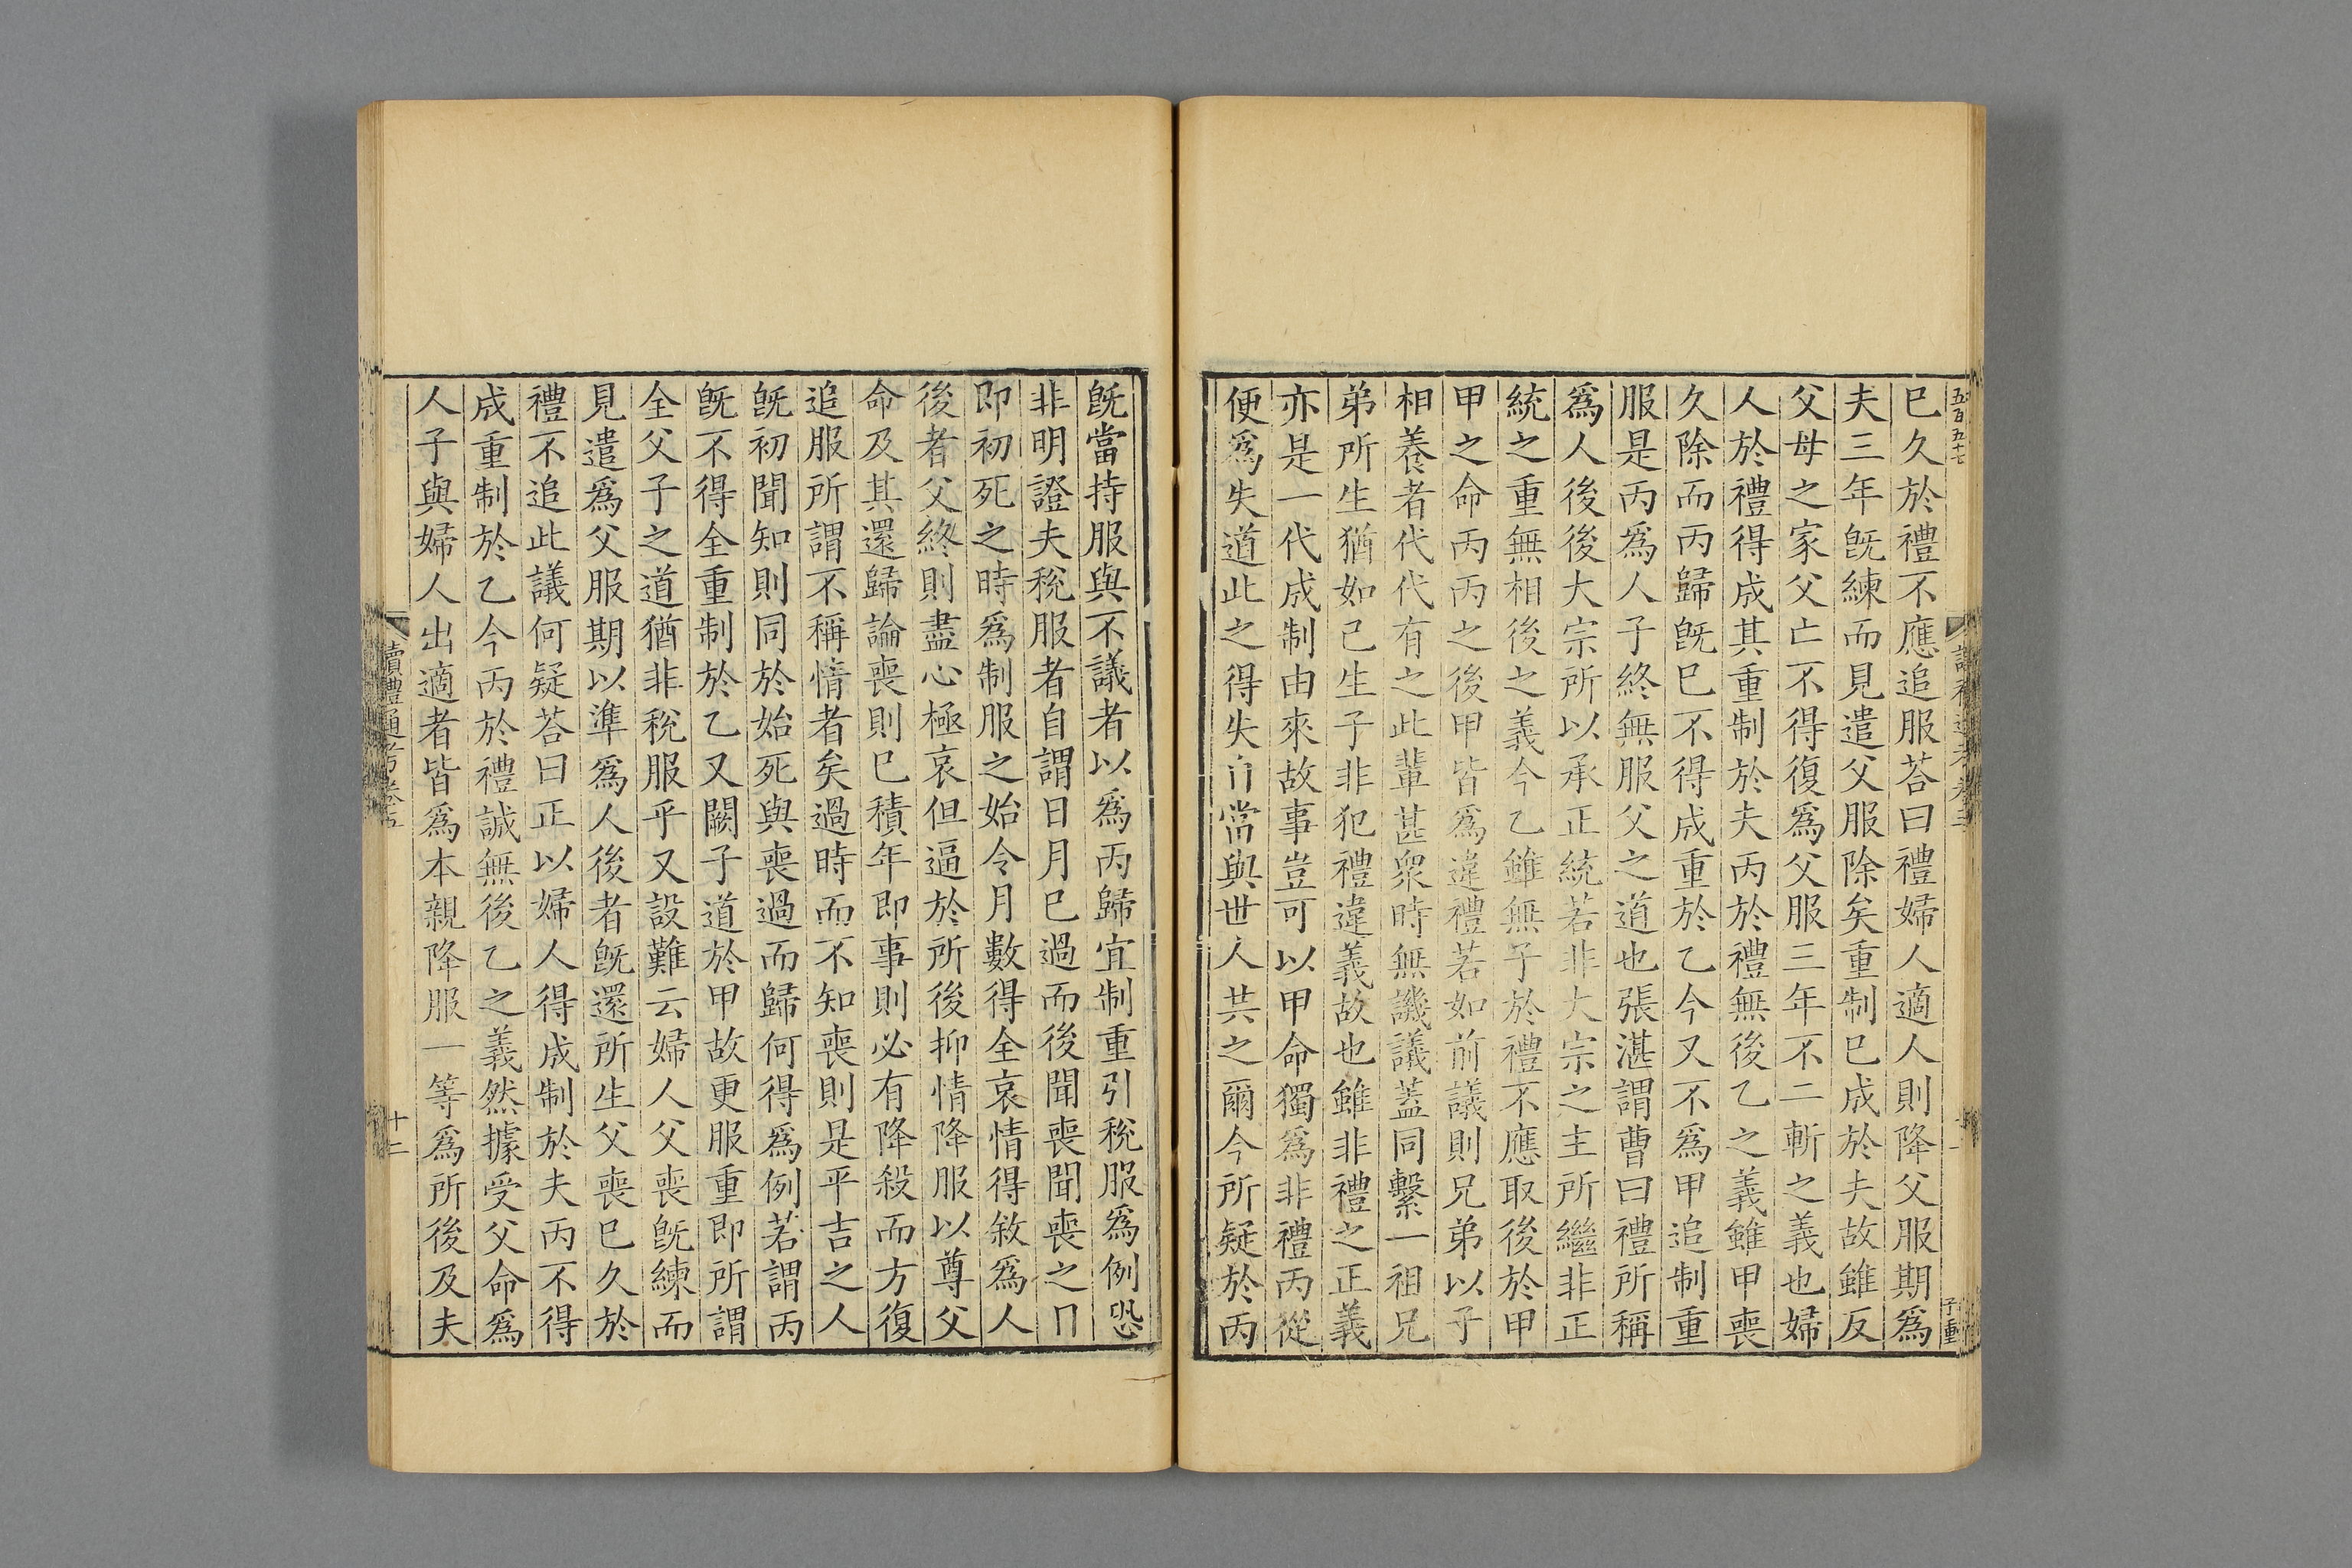 五百五十七
子重
巳久於禮不應追服荅曰禮婦人適人則降父服期爲
夫三年旣練而見遣父服除矣重制巳成於夫故雖反
父母之家父亡不得復爲父服三年不二斬之義也婦
人於禮得成其重制於夫丙於禮無後乙之義雖甲喪
久除而丙歸旣巳不得成重於乙今又不爲甲追制重
服是丙爲人子終無服父之道也張湛謂曹曰禮所稱
爲人後後大宗所以承正統若非大宗之主所繼非正
統之重無相後之義今乙雖無子於禮不應取後於甲
甲之命丙丙之後甲皆爲違禮若如前議則兄弟以子
相養者代代有之此輩甚衆時無譏議蓋同繫一祖兄
弟所生猶如己生子非犯禮違義故也雖非禮之正義
亦是一代成制由來故事豈可以甲命獨爲非禮丙從
便爲失道此之得失當與世人共之爾今所疑於丙
旣當持服與不議者以爲丙歸宜制重引稅服爲例恐
非明證夫稅服者自謂日月巳過而後聞喪聞喪之
即初死之時爲制服之始令月數得全哀情得敘爲人
後者父終則盡心極哀但逼於所後抑情降服以尊父
命及其還歸論喪則巳積年即事則必有降殺而方復
追服所謂不稱情者矣過時而不知喪則是平吉之人
旣初聞知則同於始死與喪過而歸何得爲例若謂丙
旣不得全重制於乙又闕子道於甲故更服重即所謂
全父子之道猶非稅服乎又設難云婦人父喪旣練而
見遣爲父服期以準爲人後者旣還所生父喪巳久於
禮不追此議何疑荅曰正以婦人得成制於夫丙不得
成重制於乙今丙於禮誠無後乙之義然據受父命爲
人子與婦人出適者皆爲本親降服一等爲所後及夫
讀禮通考卷五
十二